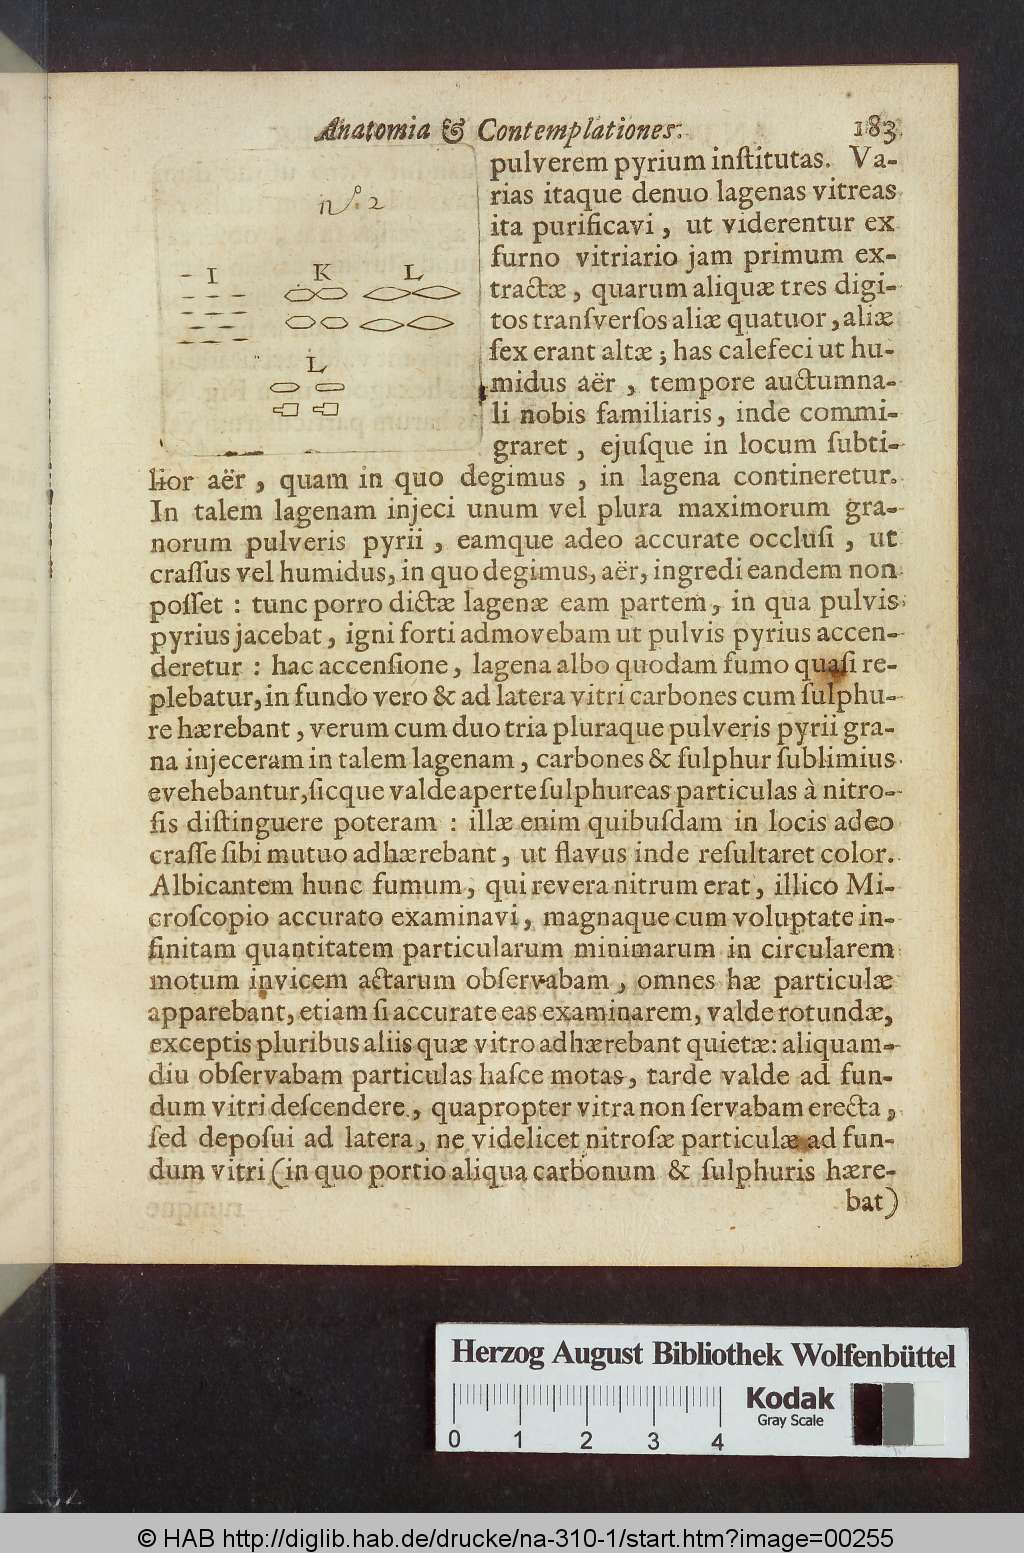 Anatomia & Contemplationes. 183
nº. 2
I K L
L
pulverem pyrium inſtitutas. Va-
rias itaque denuo lagenas vitreas
ita purificavi, ut viderentur ex
furno vitriario jam primum ex-
tractæ, quarum aliquæ tres digi-
tos tranſverſos aliæ quatuor, aliæ
ſex erant altæ; has calefeci ut hu-
midus aër, tempore auctumna-
li nobis familiaris, inde commi-
graret, ejuſque in locum ſubti-
lior aër, quam in quo degimus, in lagena contineretur.
In talem lagenam injeci unum vel plura maximorum gra-
norum pulveris pyrii, eamque adeo accurate occluſi, ut
craſſus vel humidus, in quo degimus, aër, ingredi eandem non
poſſet: tunc porro dictæ lagenæ eam partem, in qua pulvis
pyrius jacebat, igni forti admovebam ut pulvis pyrius accen-
deretur: hac accenſione, lagena albo quodam fumo quaſi re-
plebatur, in fundo vero & ad latera vitri carbones cum ſulphu-
re hærebant, verum cum duo tria pluraque pulveris pyrii gra-
na injeceram in talem lagenam, carbones & ſulphur ſublimius
evehebantur, ſicque valde aperte ſulphureas particulas à nitro-
ſis diſtinguere poteram: illæ enim quibuſdam in locis adeo
craſſe ſibi mutuo adhærebant, ut flavus inde reſultaret color.
Albicantem hunc fumum, qui revera nitrum erat, illico Mi-
croſcopio accurato examinavi, magnaque cum voluptate in-
finitam quantitatem particularum minimarum in circularem
motum invicem actarum obſervabam, omnes hæ particulæ
apparebant, etiam ſi accurate eas examinarem, valde rotundæ,
exceptis pluribus aliis quæ vitro adhærebant quietæ: aliquam-
diu obſervabam particulas haſce motas, tarde valde ad fun-
dum vitri deſcendere, quapropter vitra non ſervabam erecta,
ſed depoſui ad latera, ne videlicet nitroſæ particulæ ad fun-
dum vitri (in quo portio aliqua carbonum & ſulphuris hære-
bat)
Herzog August Bibliothek Wolfenbüttel
Kodak
Gray Scale
0 1 2 3 4
© HAB http://diglib.hab.de/drucke/na-310-1/start.htm?image=00255